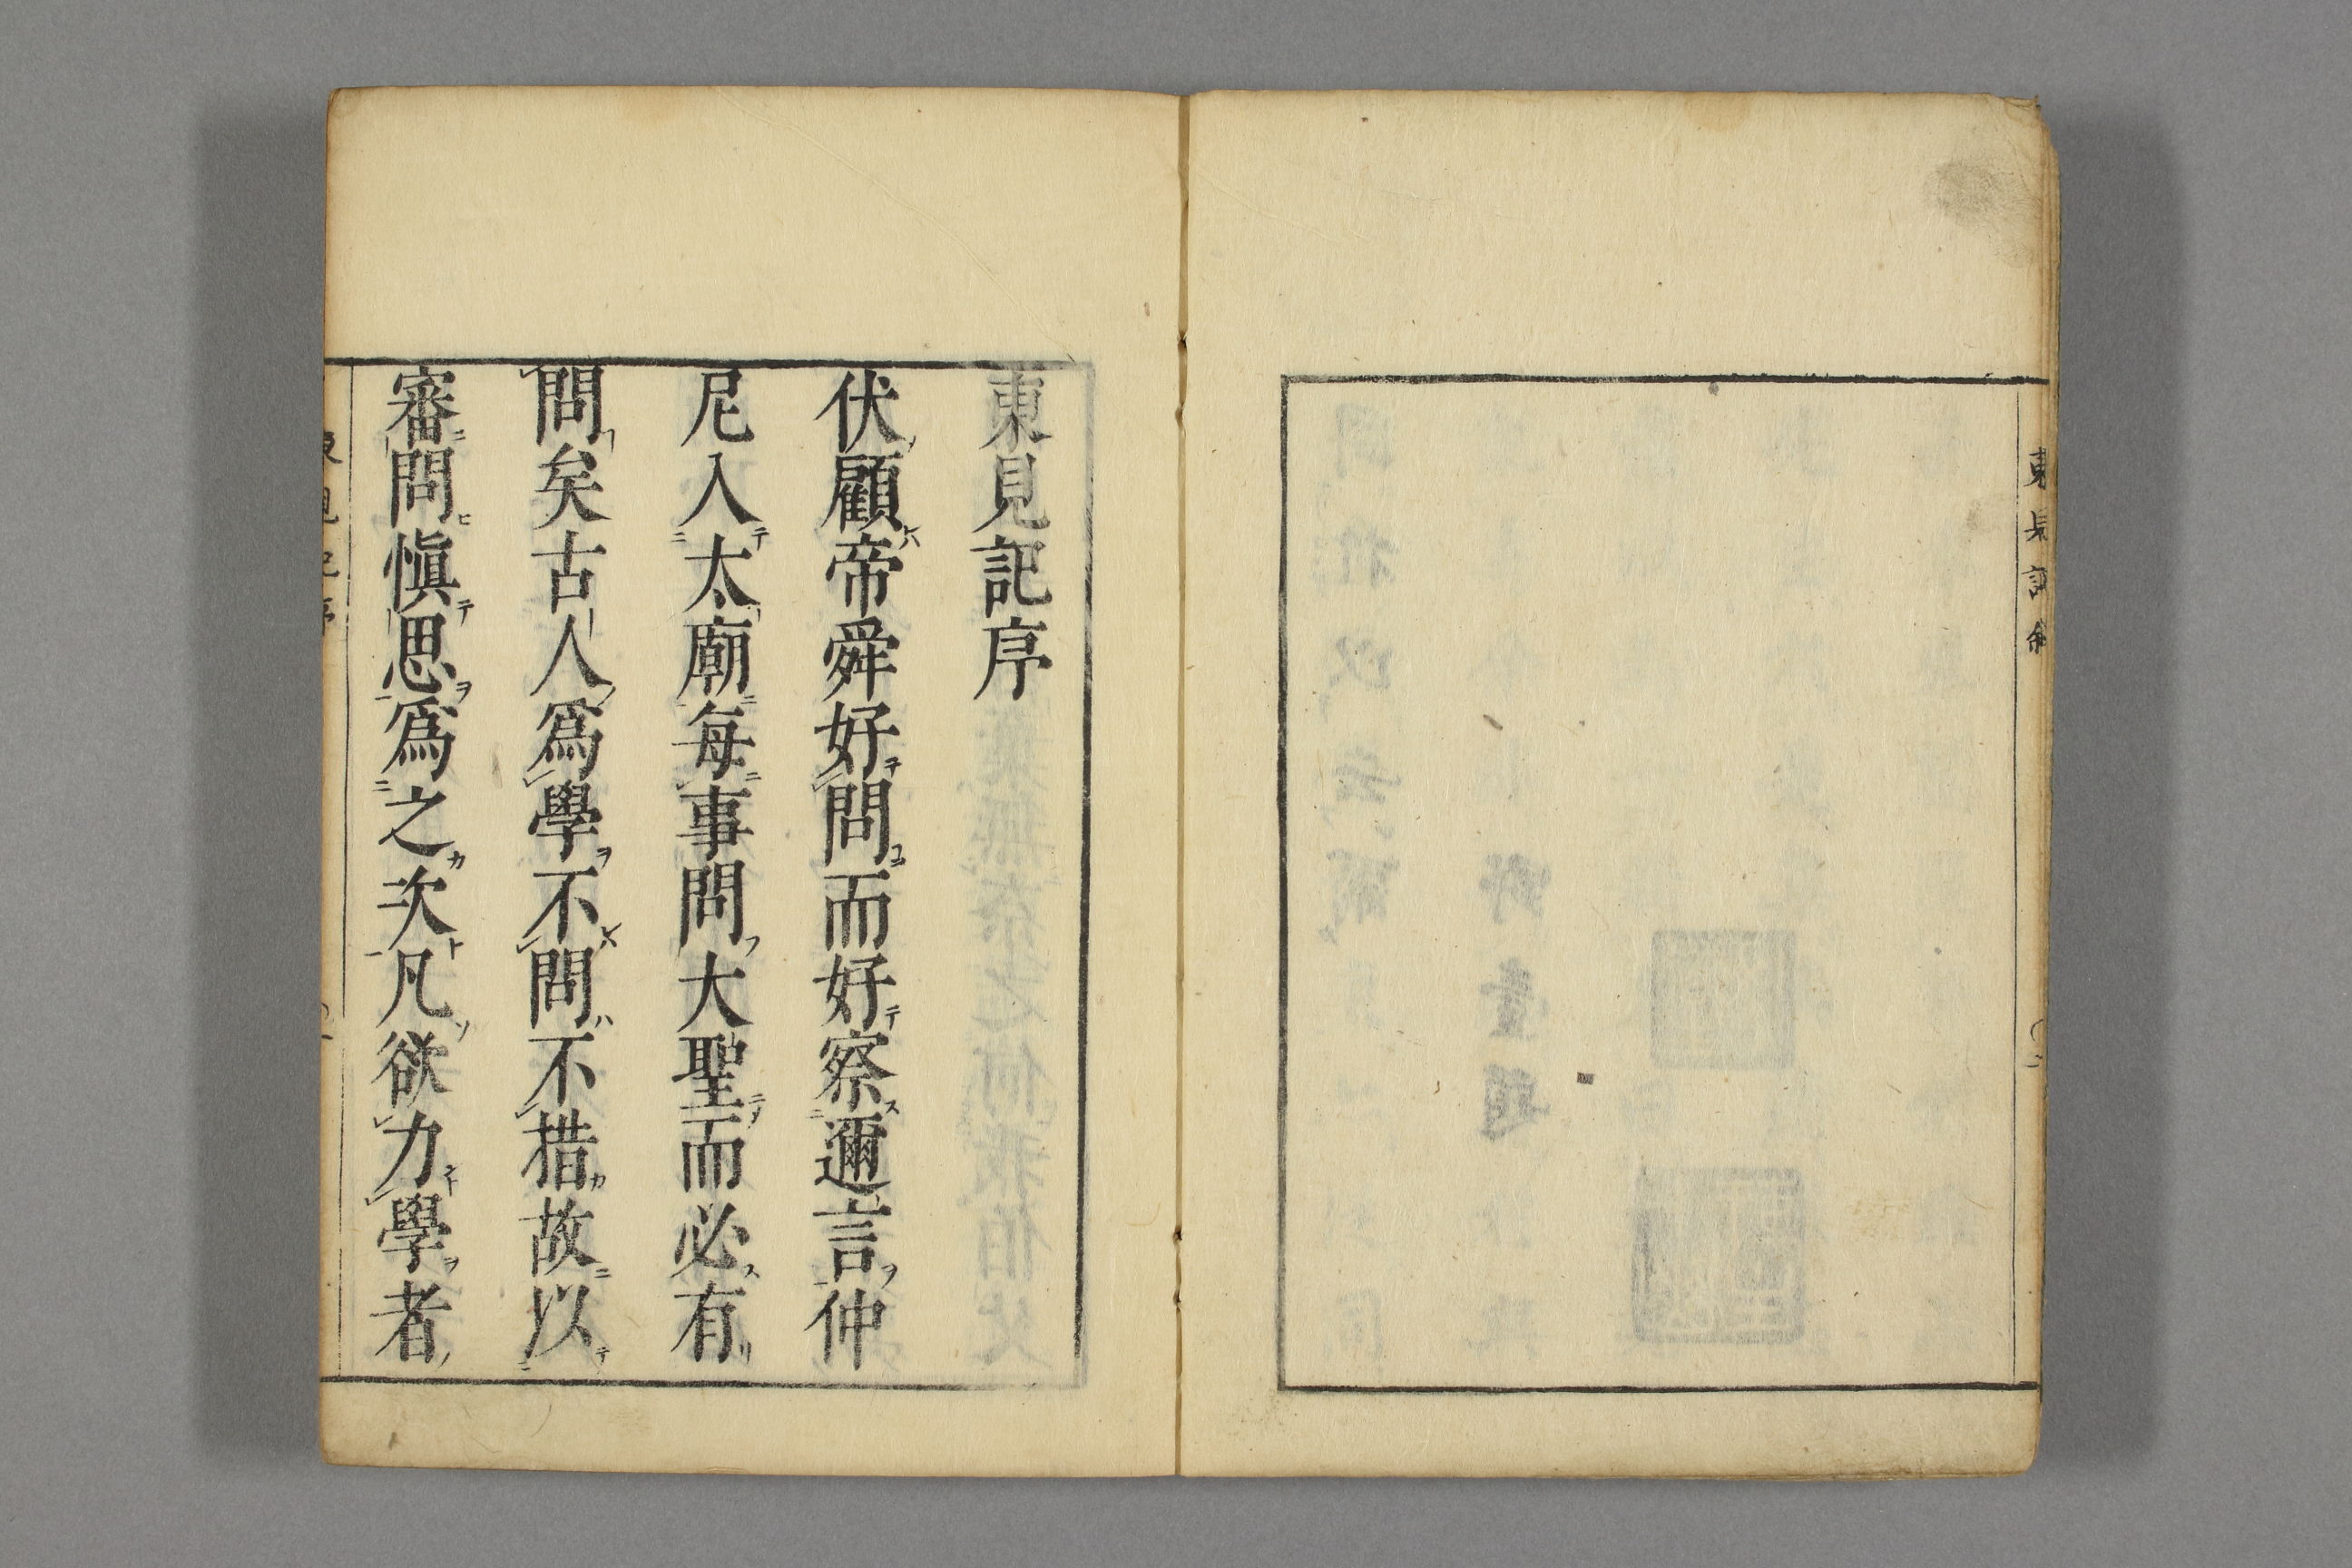 東見記序
伏顧帝舜好問而好察邇言仲
尼入太廟每事問大聖而必有
問矣古人爲學不問不措故以
審問愼思爲之次凡欲力學者